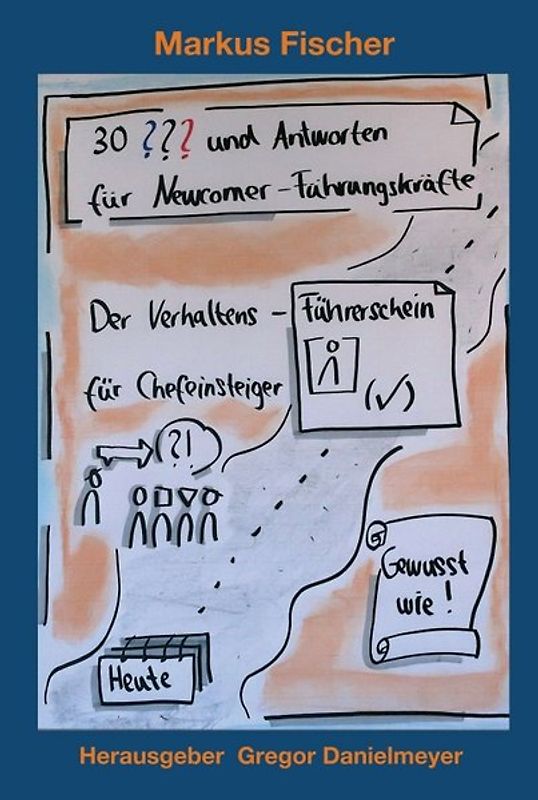 Markus Fischer
30 ??? und Antworten
für Newcomer-Führungskräfte
Der Verhaltens-Führerschein
für Chefeinsteiger
?!
Gewusst
wie!
Heute
Herausgeber Gregor Danielmeyer